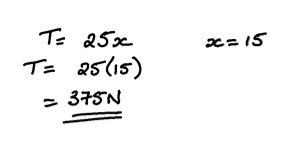 T= 25x x=15
T= 25(15)
= 375N